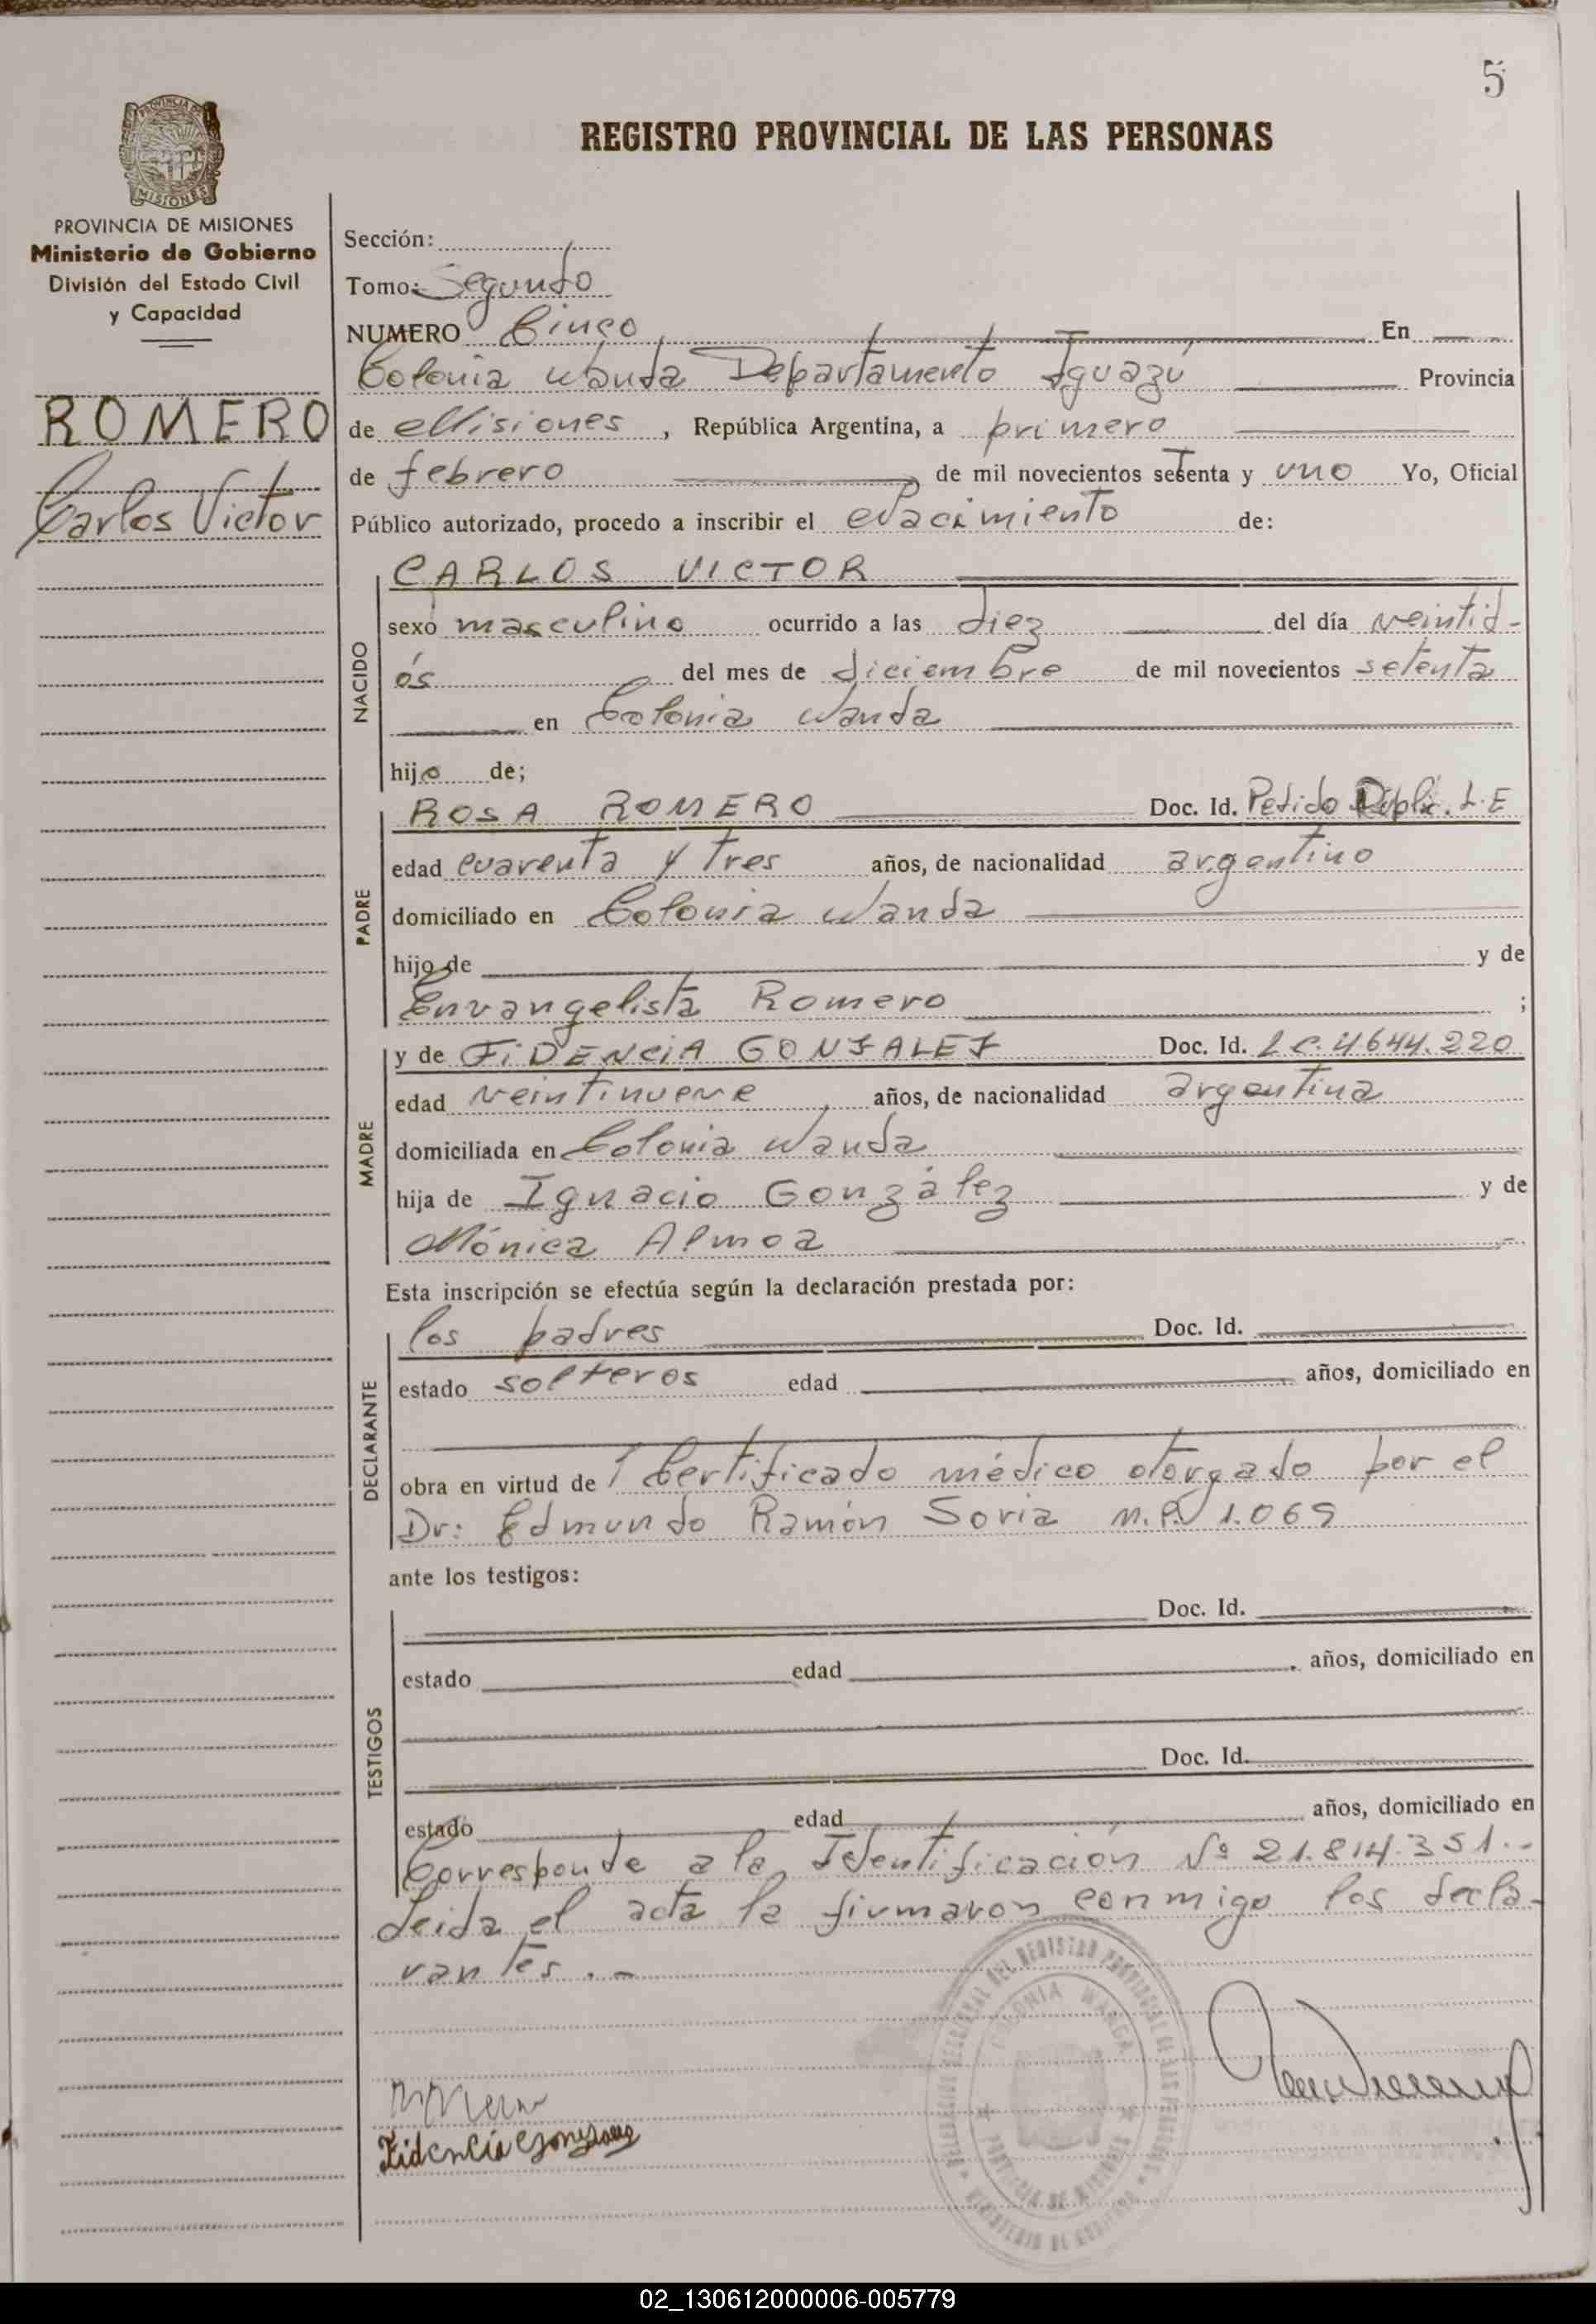 5
REGISTRO PROVINCIAL DE LAS PERSONAS
PROVINCIA DE MISIONES
PROVINCIA DE MISIONES
Ministerio de Gobierno
División del Estado Civil
y Capacidad
ROMERO
Carlos Victor
Sección:
Tomo: Segundo
NUMERO Cinco En
Colonia Wanda Departamento Iguazú Provincia
de Misiones, República Argentina, a primero
de febrero de mil novecientos setenta y uno Yo, Oficial
Público autorizado, procedo a inscribir el Nacimiento de:
NACIDO
CARLOS VICTOR
sexo masculino ocurrido a las diez del día veintid-
ós del mes de diciembre de mil novecientos setenta
en Colonia Wanda
hijo de;
PADRE
ROSA ROMERO Doc. Id. Pedido Duplic. L.E
edad cuarenta y tres años, de nacionalidad argentino
domiciliado en Colonia Wanda
hijo de y de
Envangelista Romero ;
MADRE
y de FIDENCIA GONSALES Doc. Id. L.C. 4.644.220
edad veintinueve años, de nacionalidad argentina
domiciliada en Colonia Wanda
hija de Ignacio González y de
Mónica Almoa
Esta inscripción se efectúa según la declaración prestada por:
DECLARANTE
los padres Doc. Id.
estado solteros edad años, domiciliado en
obra en virtud de 1 Certificado médico otorgado por el
Dr: Edmundo Ramón Soria M.P. 1.069
ante los testigos:
TESTIGOS
Doc. Id.
estado edad años, domiciliado en
Doc. Id.
estado edad años, domiciliado en
Corresponde a la Identificación Nº 21.814.351.-
Leida el acta la firmaron conmigo los decla-
rantes.-
COLONIA WANDA
PROVINCIA DE MISIONES
MINISTERIO DE GOBIERNO
Fidencia
02_130612000006-005779